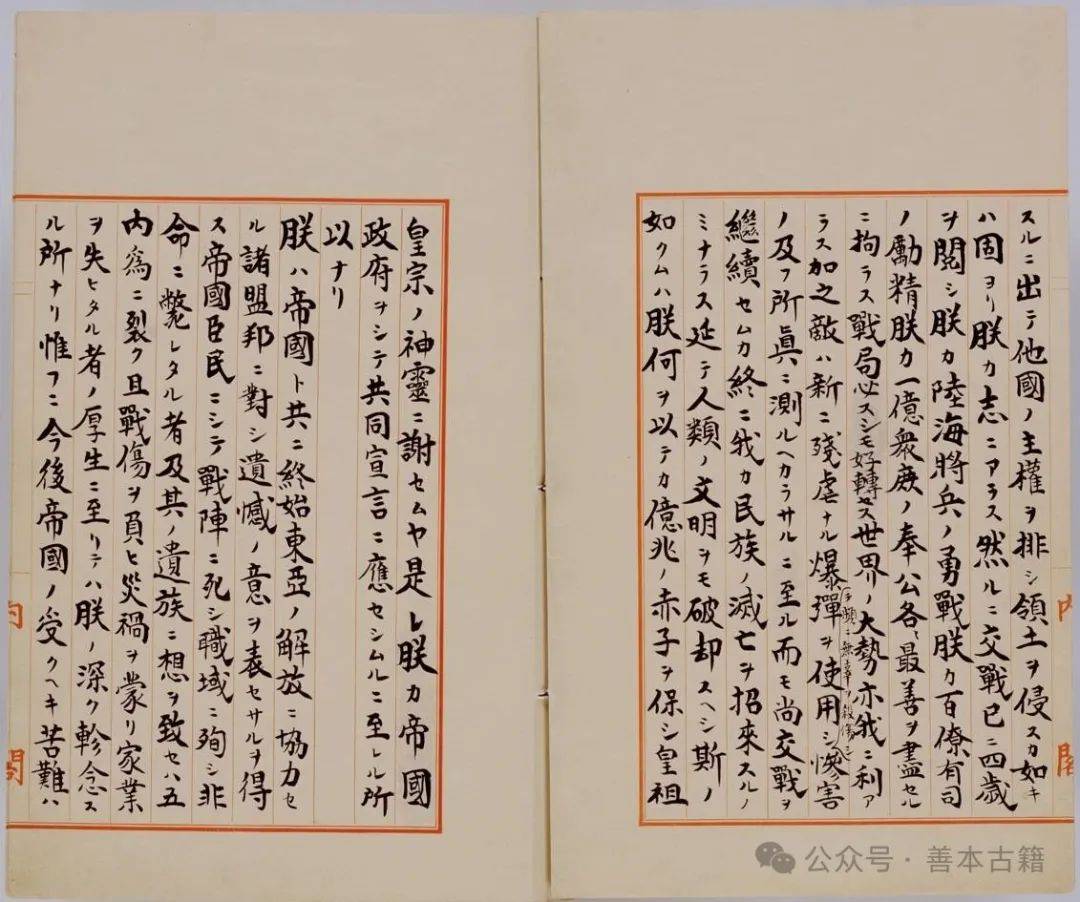 スルニ出テ他國ノ主權ヲ排シ領土ヲ侵スカ如キ
ハ固ヨリ朕カ志ニアラス然ルニ交戰已ニ四歲
ヲ閲シ朕カ陸海將兵ノ勇戰朕カ百僚有司
ノ勵精朕カ一億衆庶ノ奉公各〻最善ヲ盡セル
ニ拘ラス戰局必スシモ好轉セス世界ノ大勢亦我ニ利ア
テ頻ニ無辜ヲ殺傷シ
ラス加之敵ハ新ニ殘虐ナル爆彈ヲ使用シ慘害
ノ及フ所眞ニ測ルヘカラサルニ至ル而モ尚交戰ヲ
繼
繼續セムカ終ニ我カ民族ノ滅亡ヲ招來スルノ
ミナラス延テ人類ノ文明ヲモ破却スヘシ斯ノ
如クムハ朕何ヲ以テカ億兆ノ赤子ヲ保シ皇祖
内閣
皇宗ノ神靈ニ謝セムヤ是レ朕カ帝國
政府ヲシテ共同宣言ニ應セシムルニ至レル所
以ナリ
朕ハ帝國ト共ニ終始東亞ノ解放ニ協力セ
ル諸盟邦ニ對シ遺憾ノ意ヲ表セサルヲ得
ス帝國臣民ニシテ戰陣ニ死シ職域ニ殉シ非
命ニ斃レタル者及其ノ遺族ニ想ヲ致セハ五
内爲ニ裂ク且戰傷ヲ負ヒ災禍ヲ蒙リ家業
ヲ失ヒタル者ノ厚生ニ至リテハ朕ノ深ク軫念ス
ル所ナリ惟フニ今後帝國ノ受クヘキ苦難ハ
内閣
公众号·善本古籍